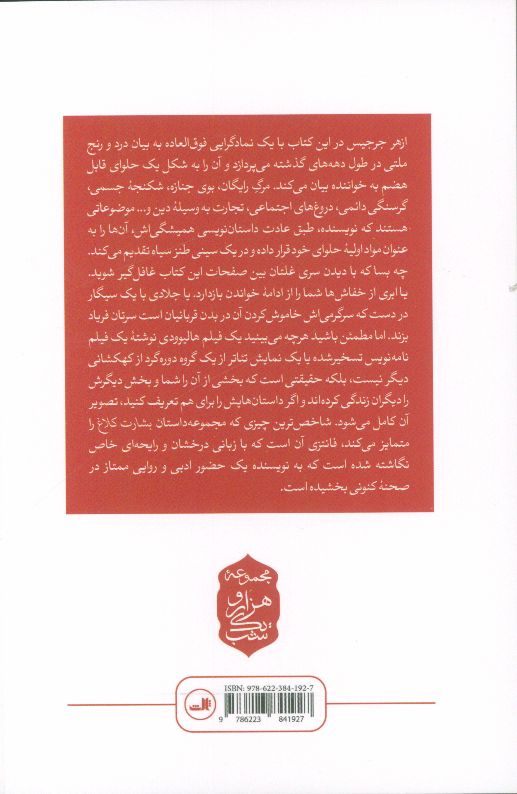 ازهر جرجیس در این کتاب با یک نمادگرایی فوق‌العاده به بیان درد و رنج
ملتی در طول دهه‌های گذشته می‌پردازد و آن را به شکل یک حلوای قابل
هضم به خواننده بیان می‌کند. مرگ رایگان، بوی جنازه، شکنجهٔ جسمی،
گرسنگی دائمی، دروغ‌های اجتماعی، تجارت به وسیلهٔ دین و... موضوعاتی
هستند که نویسنده، طبق عادت داستان‌نویسی همیشگی‌اش، آن‌ها را به
عنوان مواد اولیهٔ حلوای خود قرار داده و در یک سینی طنز سیاه تقدیم می‌کند.
چه بسا که با دیدن سری غلتان بین صفحات این کتاب غافل‌گیر شوید.
یا ابری از خفاش‌ها شما را از ادامهٔ خواندن بازدارد. یا جلادی با یک سیگار
در دست که سرگرمی‌اش خاموش‌کردن آن در بدن قربانیان است سرتان فریاد
بزند. اما مطمئن باشید هرچه می‌بینید یک فیلم هالیوودی نوشتهٔ یک فیلم
نامه‌نویس تسخیرشده یا یک نمایش تئاتر از یک گروه دوره‌گرد از کهکشانی
دیگر نیست، بلکه حقیقتی است که بخشی از آن را شما و بخش دیگرش
را دیگران زندگی کرده‌اند و اگر داستان‌هایش را برای هم تعریف کنید، تصویر
آن کامل می‌شود. شاخص‌ترین چیزی که مجموعه‌داستان بشارت کلاغ را
متمایز می‌کند، فانتزی آن است که با زبانی درخشان و رایحه‌ای خاص
نگاشته شده است که به نویسنده یک حضور ادبی و روایی ممتاز در
صحنهٔ کنونی بخشیده است.
مجموعهٔ
هزار و
یک
شب
ISBN: 978-622-384-192-7
ثالث
9 786223 841927